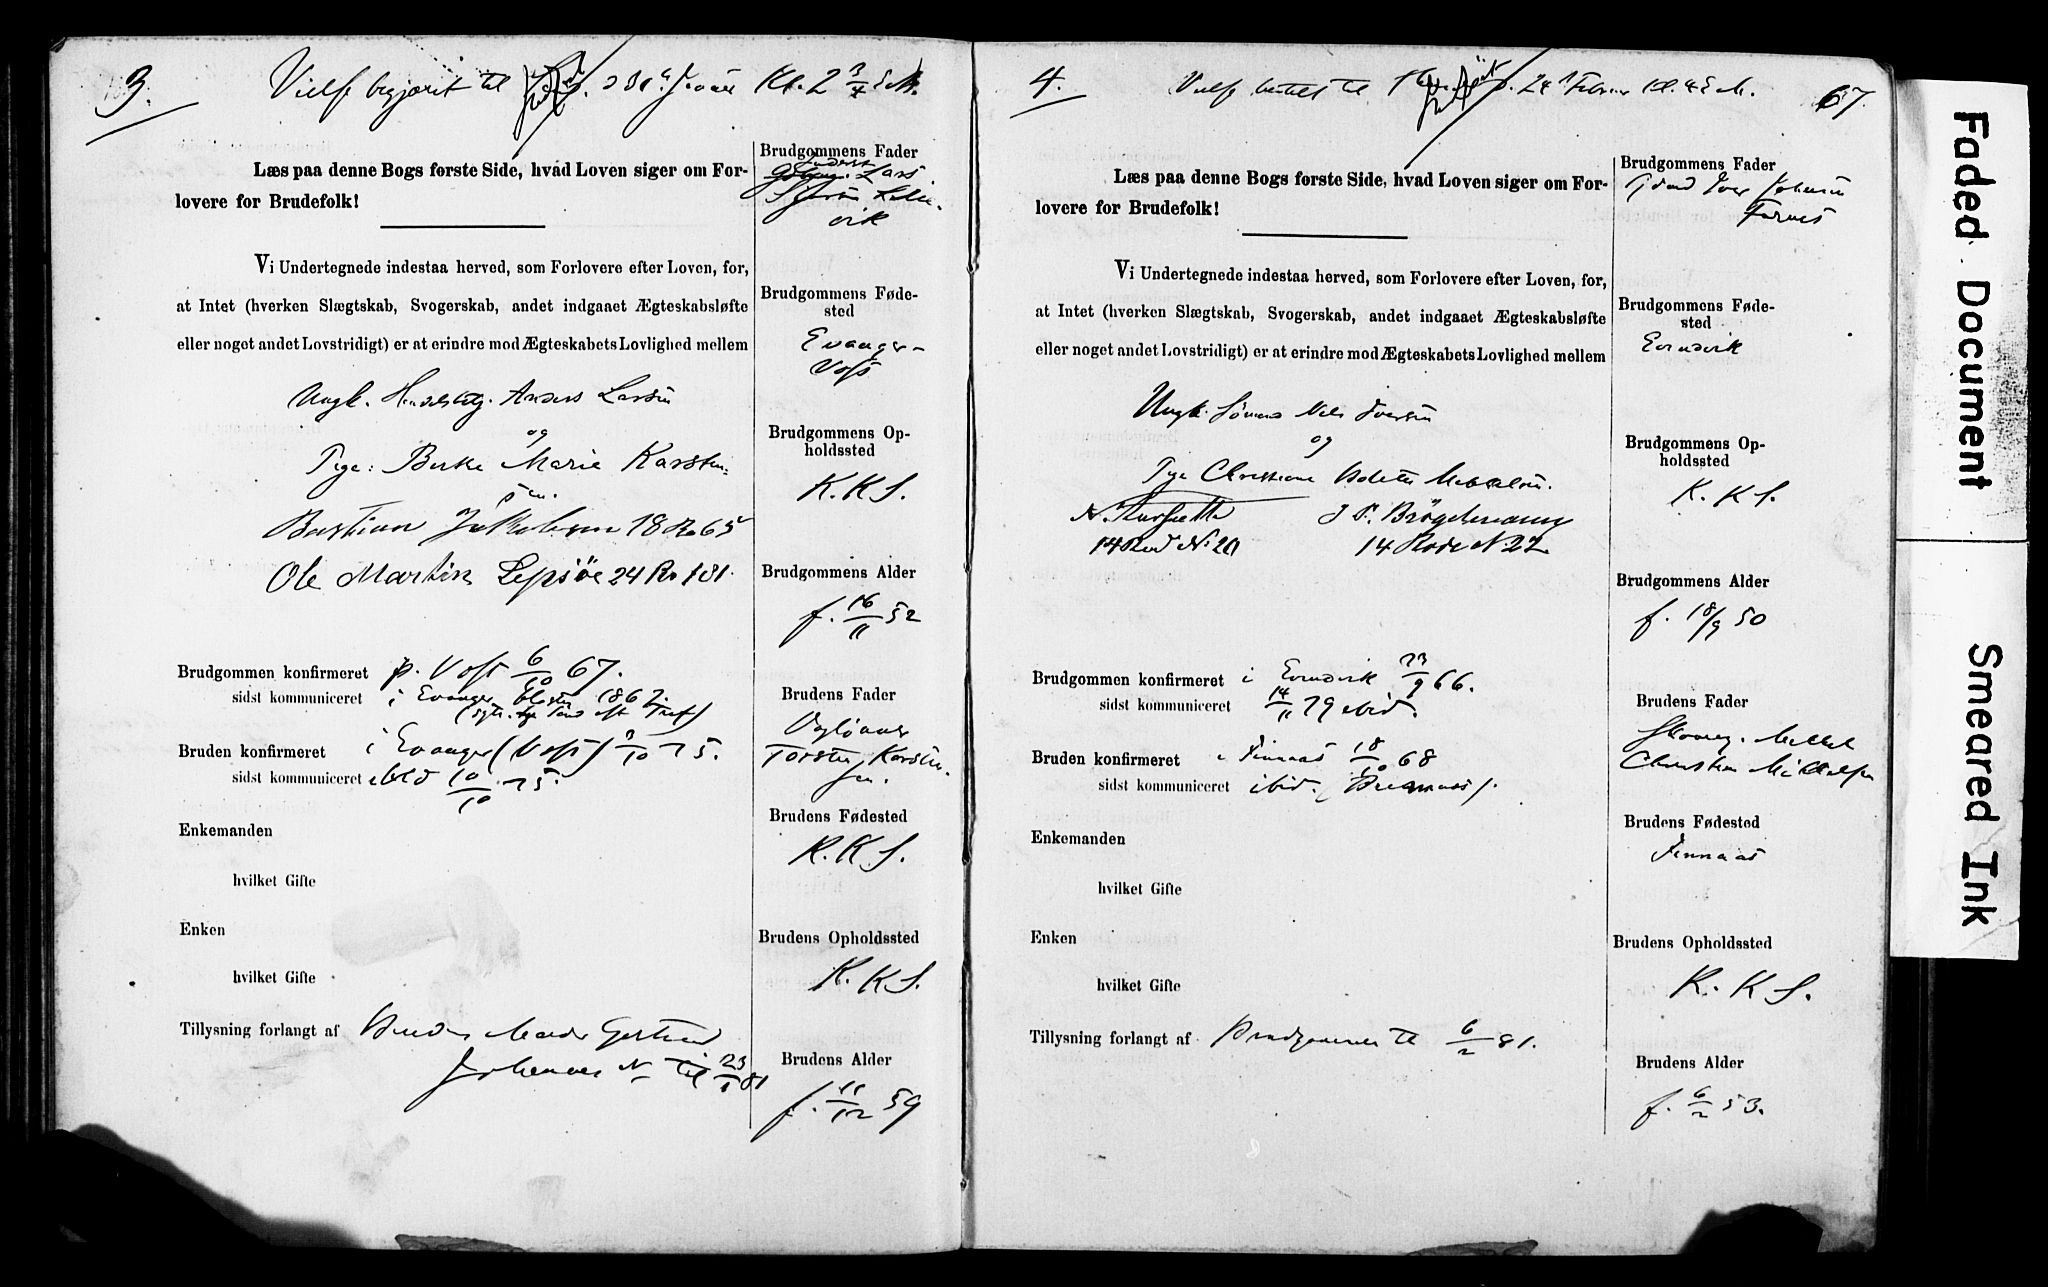 3.
Vielse begjæret til d. 30te Januar Kl. 2 3/4 Em.
Læs paa denne Bogs første Side, hvad Loven siger om For-
lovere for Brudefolk!
Vi Undertegnede indestaa herved, som Forlovere efter Loven, for,
at Intet (hverken Slægtskab, Svogerskab, andet indgaaet Ægteskabsløfte
eller noget andet Lovstridigt) er at erindre mod Ægteskabets Lovlighed mellem
Ungk. Anders Larsen
og
Pige: Berke Marie Karsten-
sen.
Bastian Jakobsen 18 Ro 65
Ole Martin Lepsöe 24 Ro 181.
Brudgommen konfirmeret p. Voss 6/10 67.
sidst kommuniceret i Evanger 1867.
Bruden konfirmeret i Evanger (Voss) 3/10 75.
sidst kommuniceret ibid 10/10 75.
Enkemanden
hvilket Gifte
Enken
hvilket Gifte
Tillysning forlangt af Brudens Moder Gertrud
Johannes til 23/1 81
Brudgommens Fader
Lars
vik
Brudgommens Føde-
sted
Evanger-
Voss
Brudgommens Op-
holdssted
K. K S.
Brudgommens Alder
f. 16/11 52
Brudens Fader
Torsten Karsten-
sen.
Brudens Fødested
K. K S.
Brudens Opholdssted
K. K S.
Brudens Alder
f. 11/12 59
4.
Vielse til d. 24de Februar kl. 4 Em.
67.
Læs paa denne Bogs første Side, hvad Loven siger om For-
lovere for Brudefolk!
Vi Undertegnede indestaa herved, som Forlovere efter Loven, for,
at Intet (hverken Slægtskab, Svogerskab, andet indgaaet Ægteskabsløfte
eller noget andet Lovstridigt) er at erindre mod Ægteskabets Lovlighed mellem
Ungk. Sømand Nels Iversen
og
Pige Christiane Mikkelsen.
J P. Brögelmann
14 Rod No 20 14 Rode N 22
Brudgommen konfirmeret i Evendvik 23/9 66.
sidst kommuniceret 14/11 79 ibid.
Bruden konfirmeret i Finnaas 18/10 68
sidst kommuniceret ibid.
Enkemanden
hvilket Gifte
Enken
hvilket Gifte
Tillysning forlangt af Brudgommen til 6/2 81.
Brudgommens Fader
Iver Johnsen
Brudgommens Føde-
sted
Evendvik
Brudgommens Op-
holdssted
K. K S.
Brudgommens Alder
f. 18/9 50
Brudens Fader
Mikkel
Christian Mikkelsen
Brudens Fødested
Finnaas
Brudens Opholdssted
K. K S.
Brudens Alder
f. 6/2 53.
Faded Document
Smeared Ink